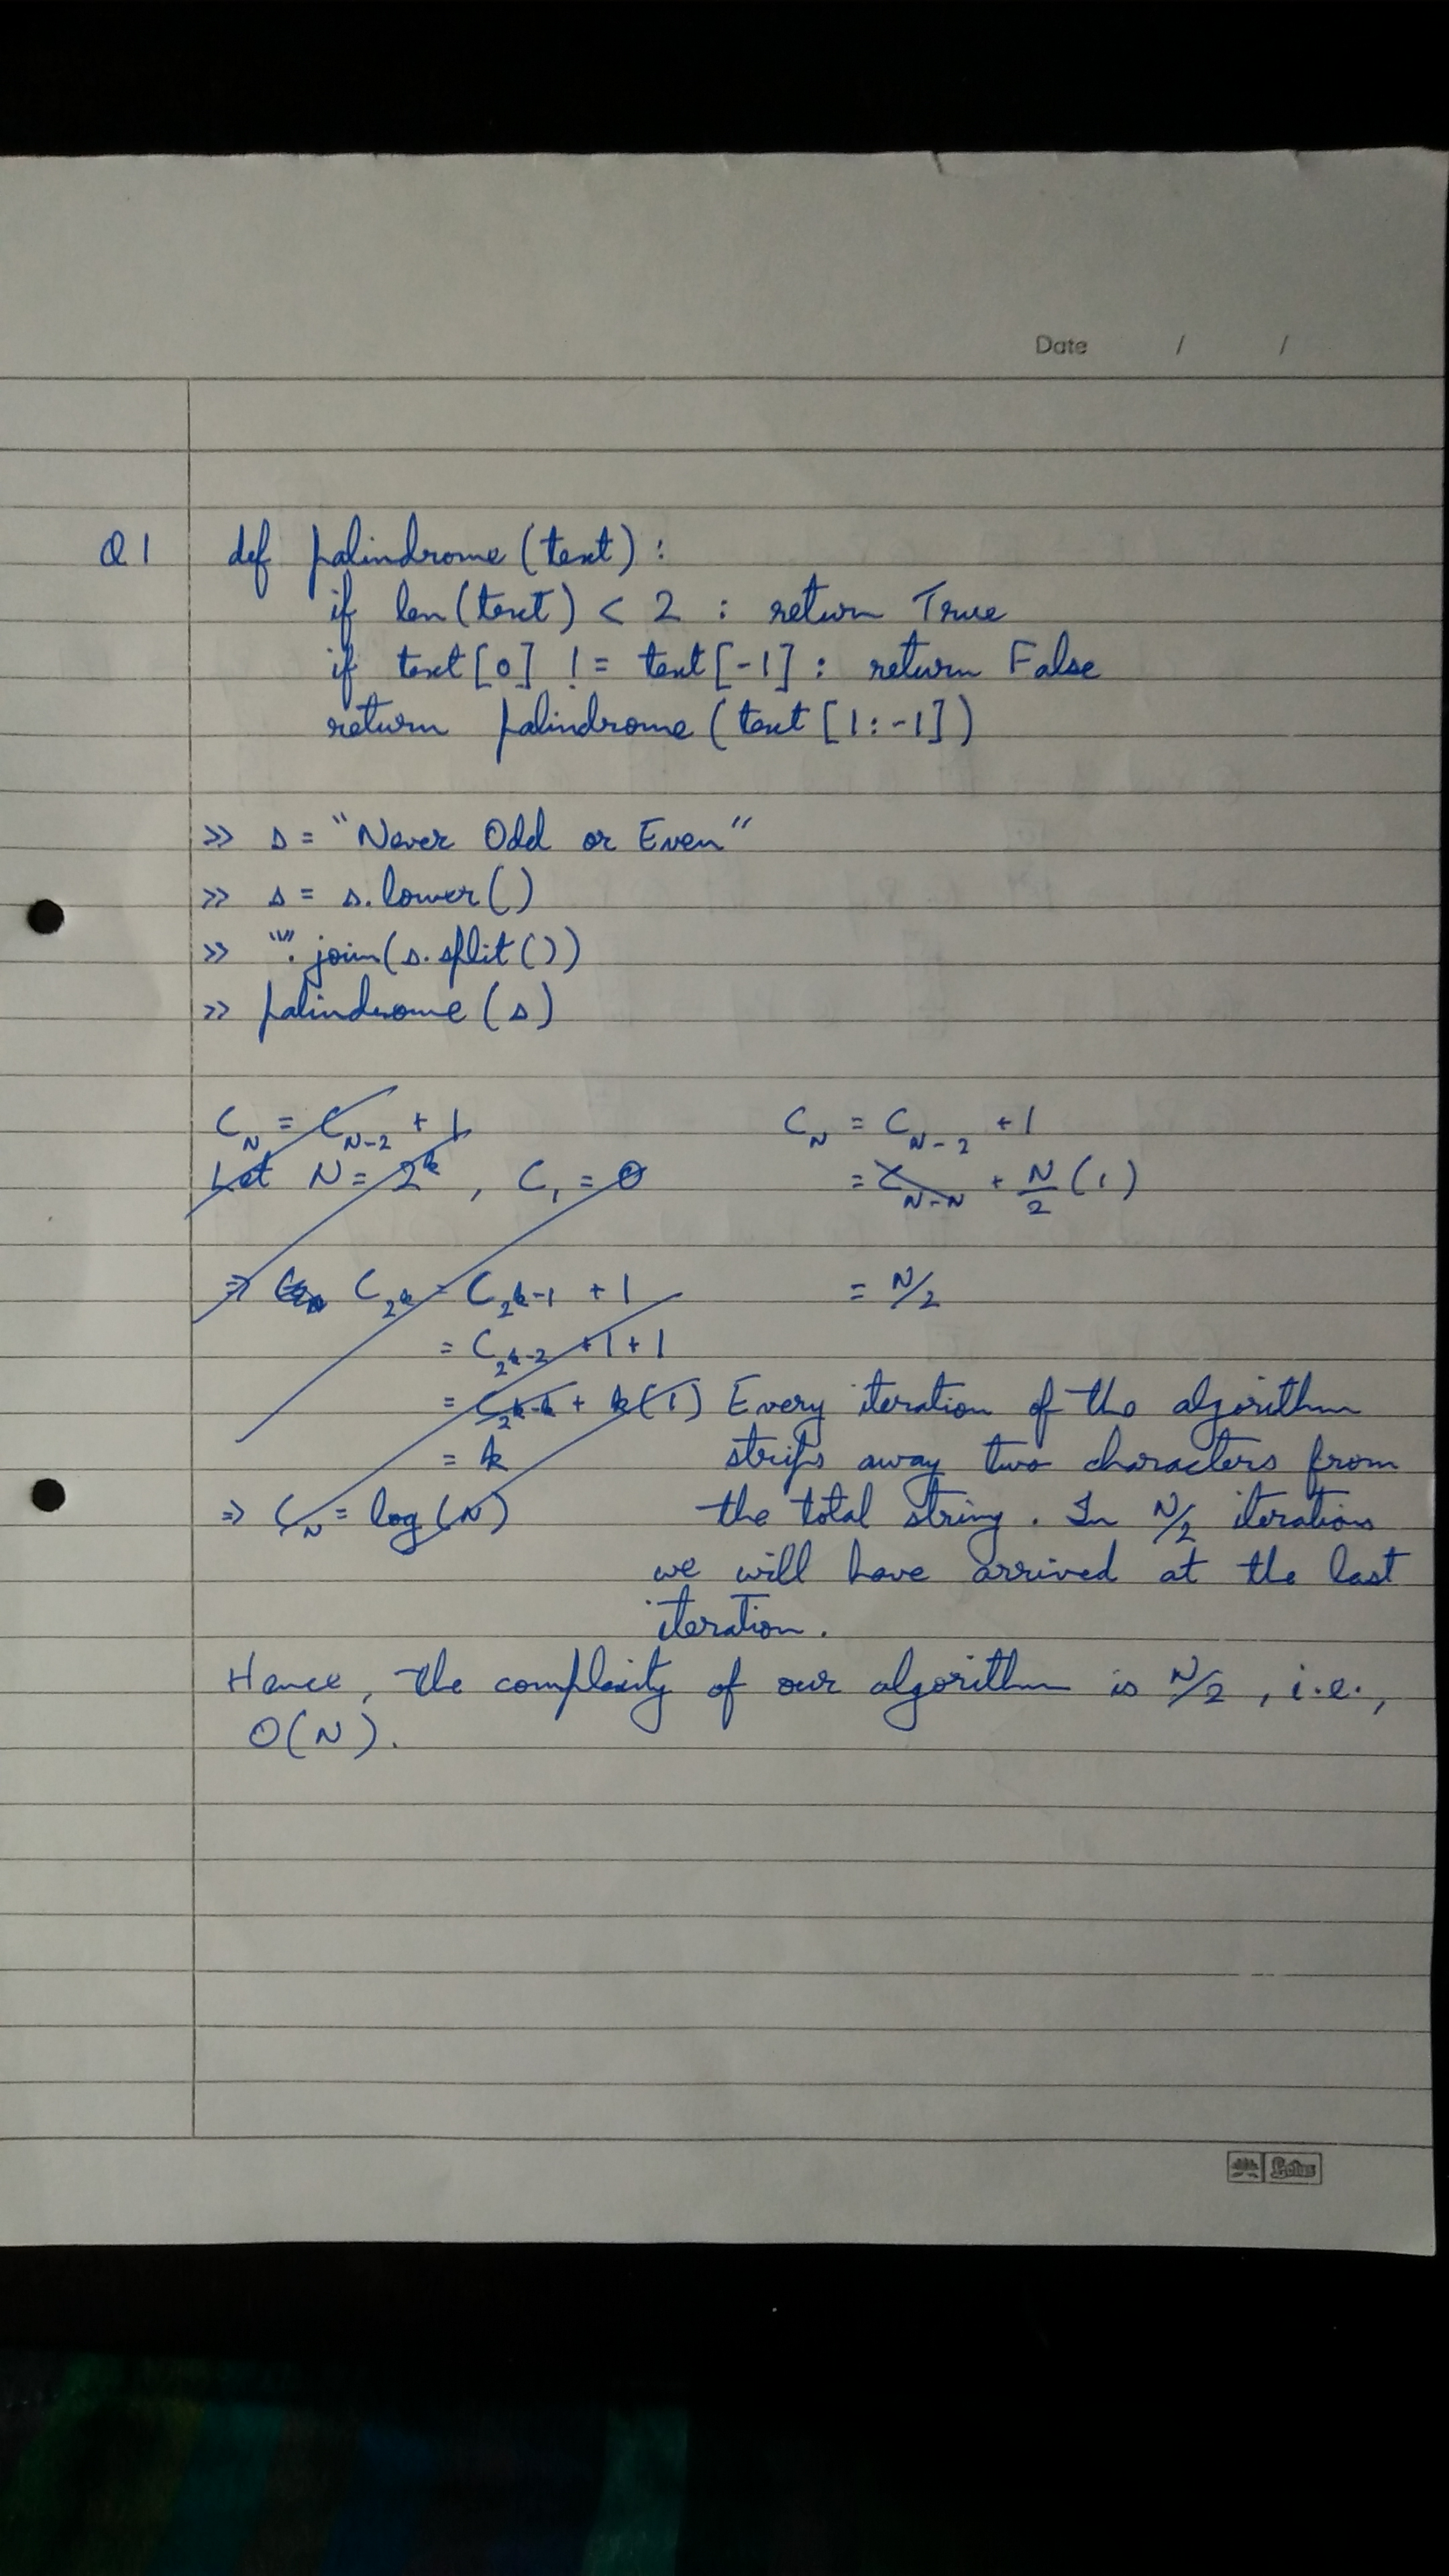 Date / /
Q1 def palindrome(text):
if len(text) < 2 : return True
if text[0] != text[-1] : return False
return palindrome(text[1:-1])
>> s = "Never Odd or Even"
>> s = s.lower()
>> "".join(s.split())
>> palindrome(s)
C_N = C_{N-2} + 1
Let N = 2^k, C_1 = 0
=> C_{2^k} = C_{2^{k-1}} + 1
= C_{2^{k-2}} + 1 + 1
= C_{2^{k-k}} + k(1)
= k
=> C_N = log(N)
C_N = C_{N-2} + 1
= C_{N-N} + N/2 (1)
= N/2
Every iteration of the algorithm
strips away two characters from
the total string. In N/2 iterations
we will have arrived at the last
iteration.
Hence, the complexity of our algorithm is N/2, i.e.,
O(N).
Lotus